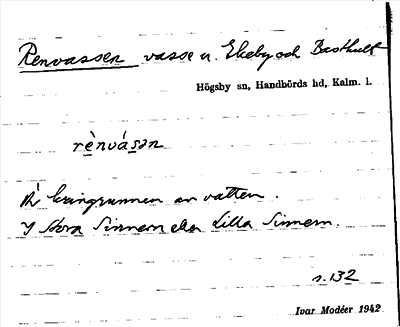 Renvassen vasse u. Ekeby och Basthult
Högsby sn, Handbörds hd, Kalm. l.
rènvásan
Är kringrunnen av vatten.
I Stora Sinnern eller Lilla Sinnern.
s. 132
Ivar Modéer 1942